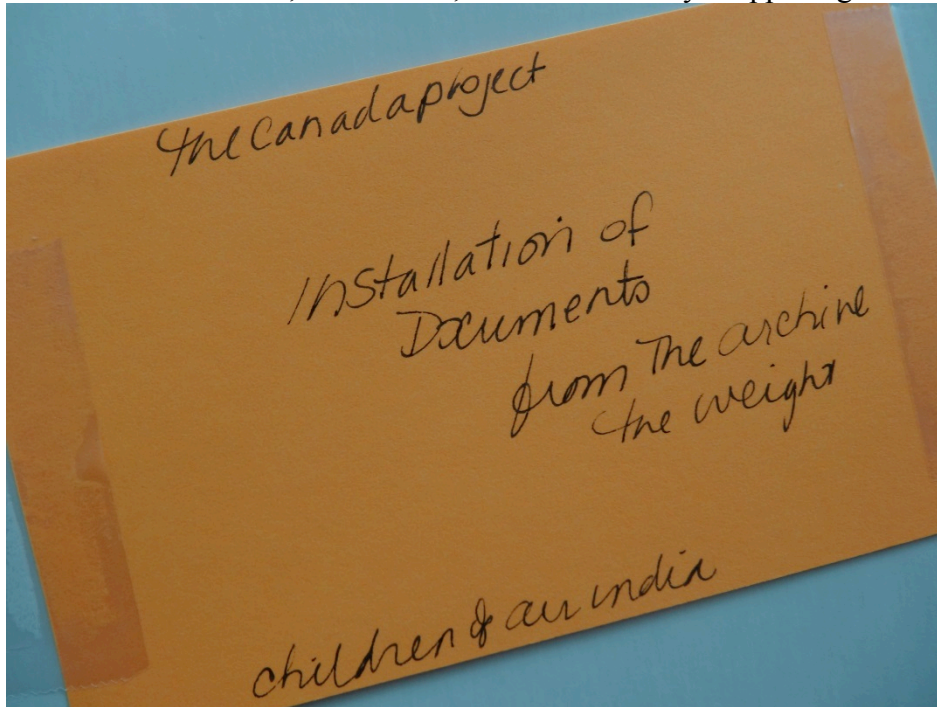 thecanadaproject
Installation of
Documents
from The archive
the weight
children of air india